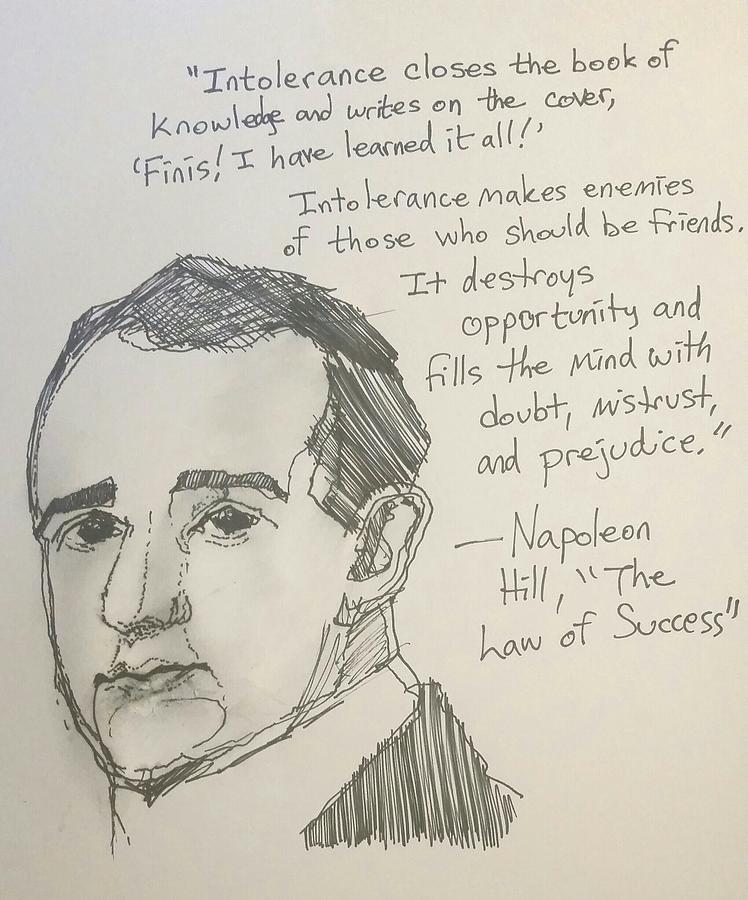 "Intolerance closes the book of
Knowledge and writes on the cover,
'Finis! I have learned it all!'
Intolerance makes enemies
of those who should be friends.
It destroys
opportunity and
fills the mind with
doubt, mistrust,
and prejudice."
—Napoleon
Hill, "The
Law of Success"